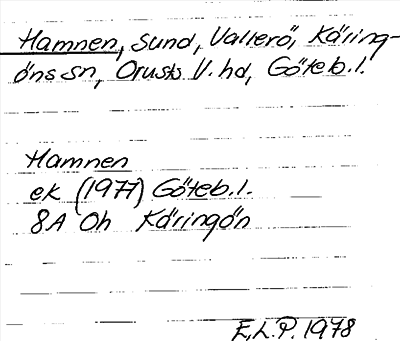 Hamnen, sund, Vallerö, Käring-
öns sn, Orusts V. hd, Göteb. l.
Hamnen
ek (1977) Göteb. l.
8A Oh Käringön
E.L.P. 1978